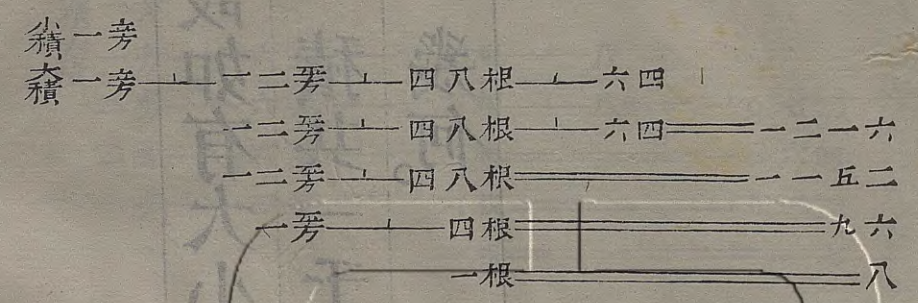 小積一立方
大積一立方⊥一二平方⊥四八根⊥六四
一二平方⊥四八根⊥六四＝一二一六
一二平方⊥四八根＝一一五二
一平方⊥四根＝九六
一根＝八